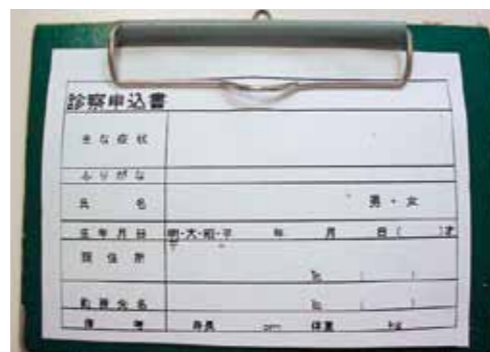 診察申込書
主な症状
ふりがな
氏名 男・女
生年月日 明・大・昭・平 年 月 日( )才
現住所
℡ ( )
勤務先名 ℡ ( )
備考 身長 cm 体重 kg